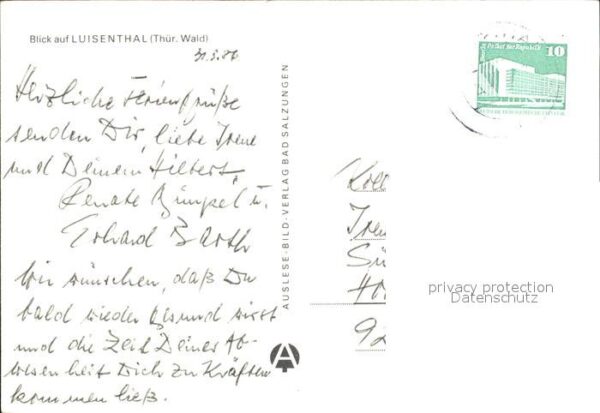 Blick auf LUISENTHAL (Thür. Wald)
31.3.86
Herzliche Feriengrüße
senden Dir, liebe Irene
und Deinem Hilbert,
Renate Gümpel u.
Erhard Barth
Wir wünschen, daß Du
bald wieder gesund wirst
und die Zeit Deiner Ab-
wesenheit Dich zu Kräften
kommen ließ.
AUSLESE-BILD-VERLAG BAD SALZUNGEN
A
10
Palast der Republik
Koll
Iren
Sü
92
privacy protection
Datenschutz